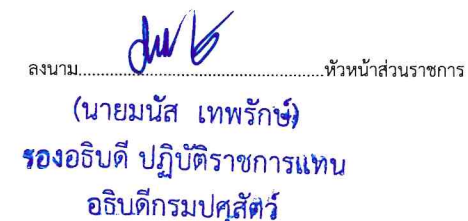 ลงนาม......................................................หัวหน้าส่วนราชการ
(นายมนัส เทพรักษ์)
รองอธิบดี ปฏิบัติราชการแทน
อธิบดีกรมปศุสัตว์